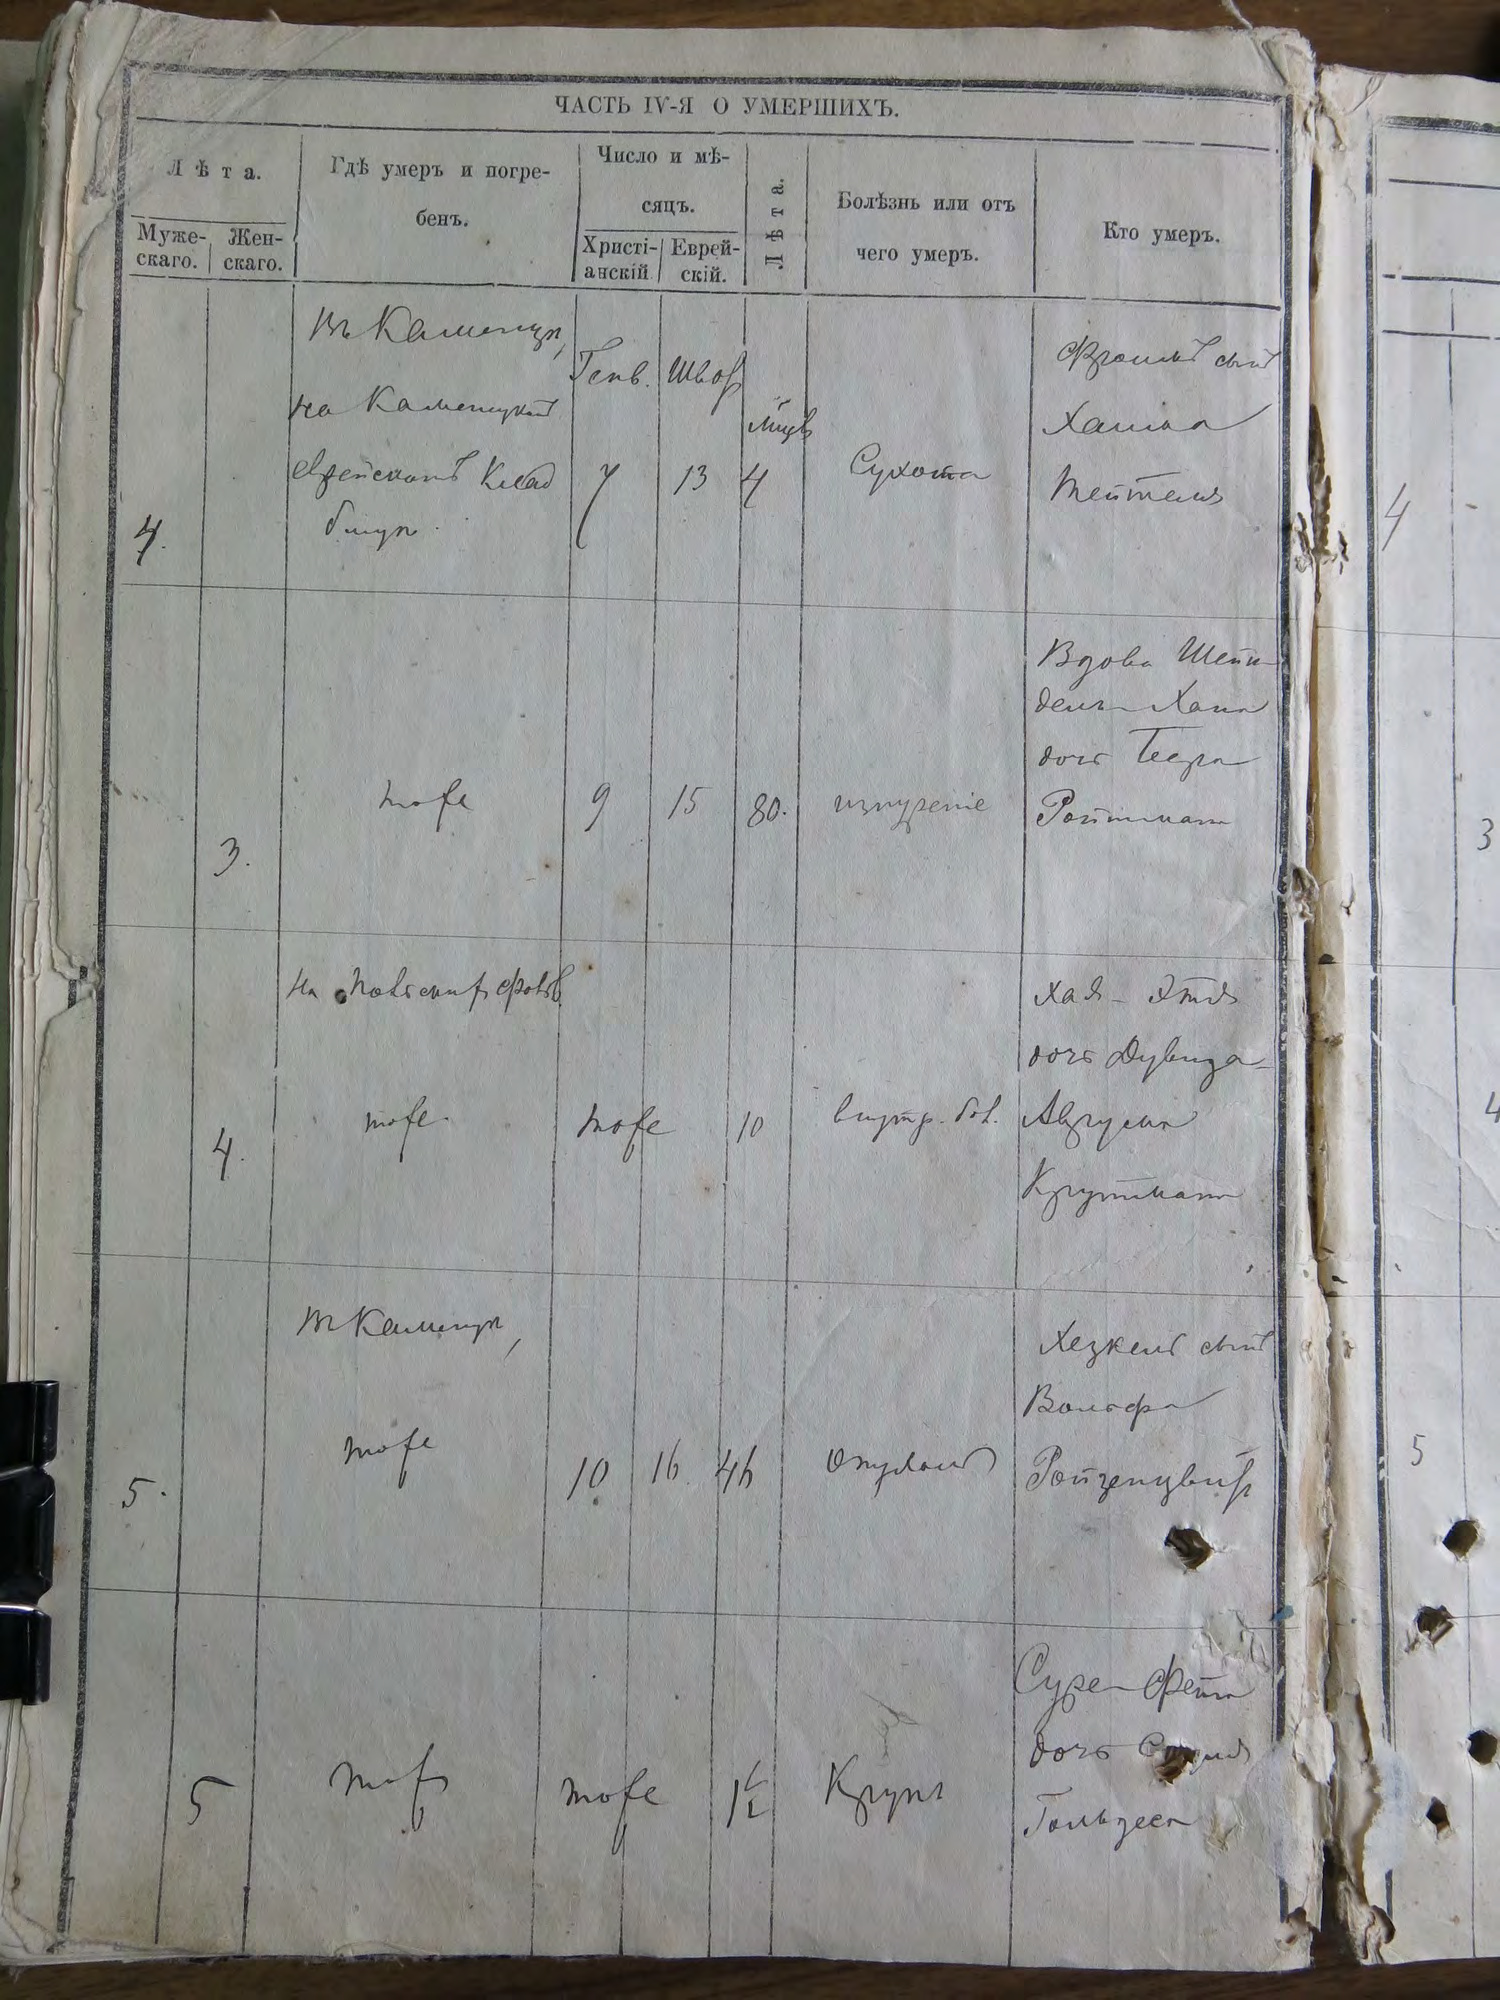 ЧАСТЬ IV-Я О УМЕРШИХЪ.
Лѣта.
Муже-
скаго.
Жен-
скаго.
Гдѣ умеръ и погре-
бенъ.
Число и мѣ-
сяцъ.
Христі-
анскій
Еврей-
скій.
Лѣта.
Болѣзнь или отъ
чего умеръ.
Кто умеръ.
4.
въ Каменцѣ,
на Каменецкомъ
еврейскомъ клад
бищѣ.
Генв.
7
Шват
13
мцев
4
Сухота
Фроимъ сынъ
Хаима
Тейтель
4
3.
тоже
9
15
80.
изнурение
Вдова Шейн
дель-Хана
дочь
Ройтман
3
4.
на фольв.
тоже
тоже
10
внутр. бол.
Хая-Этля
дочь Дувида-
Крутман
4
5.
въ Каменцѣ,
тоже
10
16
46
опухоль
Хезкель сынъ
Вольфа
Ройзенцвигъ
5
5
тоже
тоже
1½
Крупъ
Суре-Фейга
дочь